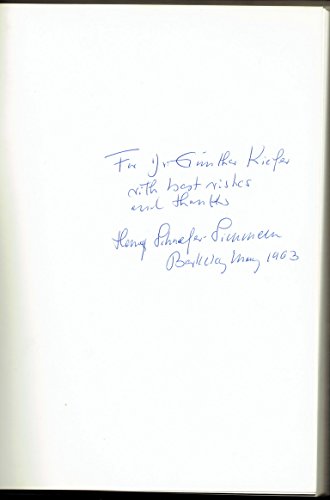 For Dr Günther Kiefer
with best wishes
and thanks
Henry Schaefer-Simmern
Berkeley May 1963